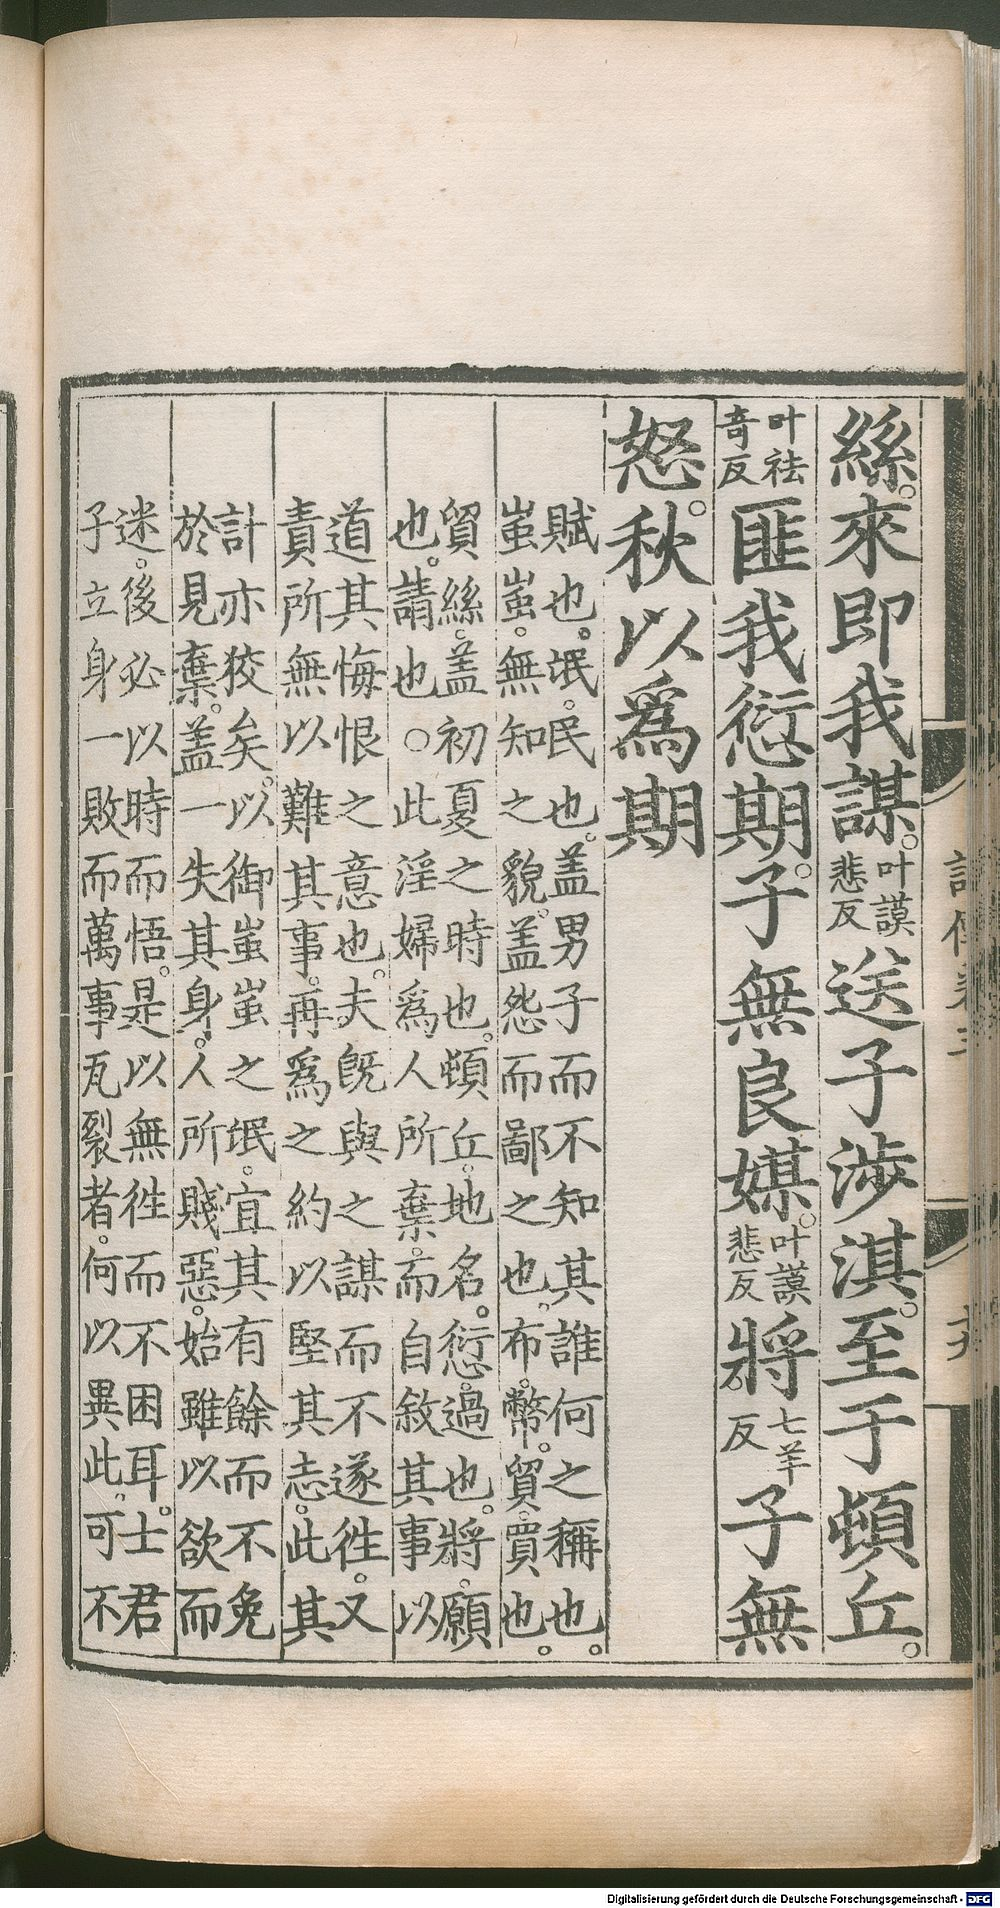 絲。來即我謀。叶謨悲反送子涉淇。至于頓丘。
叶祛奇反匪我愆期。子無良媒。叶謨悲反將七羊反子無
怒。秋以爲期
賦也。氓。民也。盖男子而不知其誰何之稱也。
蚩蚩。無知之貌。盖怨而鄙之也。布。幣。貿。買也。
貿絲。盖初夏之時也。頓丘。地名。愆。過也。將。願
也。請也。○此淫婦爲人所棄。而自敘其事以
道其悔恨之意也。夫旣與之謀而不遂徃。又
責所無以難其事。再爲之約以堅其志。此其
計亦狡矣。以御蚩蚩之氓。宜其有餘而不免
於見棄。盖一失其身。人所賤惡。始雖以欲而
迷。後必以時而悟。是以無徃而不困耳。士君
子立身一敗而萬事瓦裂者。何以異此。可不
Digitalisierung gefördert durch die Deutsche Forschungsgemeinschaft - DFG